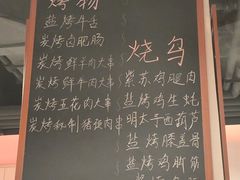 烤物
盐烤牛舌
炭烤卤肥肠
炭烤鲜羊肉大串
炭烤鲜牛肉大串
炭烤五花肉大串
炭烤秘制猪颈肉串
烧鸟
紫苏鸡腿肉
盐烤鸡生蚝
明太子西葫芦
盐烤膝盖骨
盐烤鸡脚筋